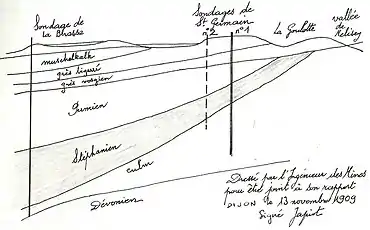 Sondage de
La Brosse
Sondages de
St Germain
n°2
n°1
La Goulotte
vallée
de
Melisey
muschelkalk
grès bigarré
grès vosgien
Permien
Stéphanien
culm
Dévonien
Dressé par l'Ingénieur des Mines
pour être joint à son rapport
DIJON le 13 novembre 1909
Signé Japiot